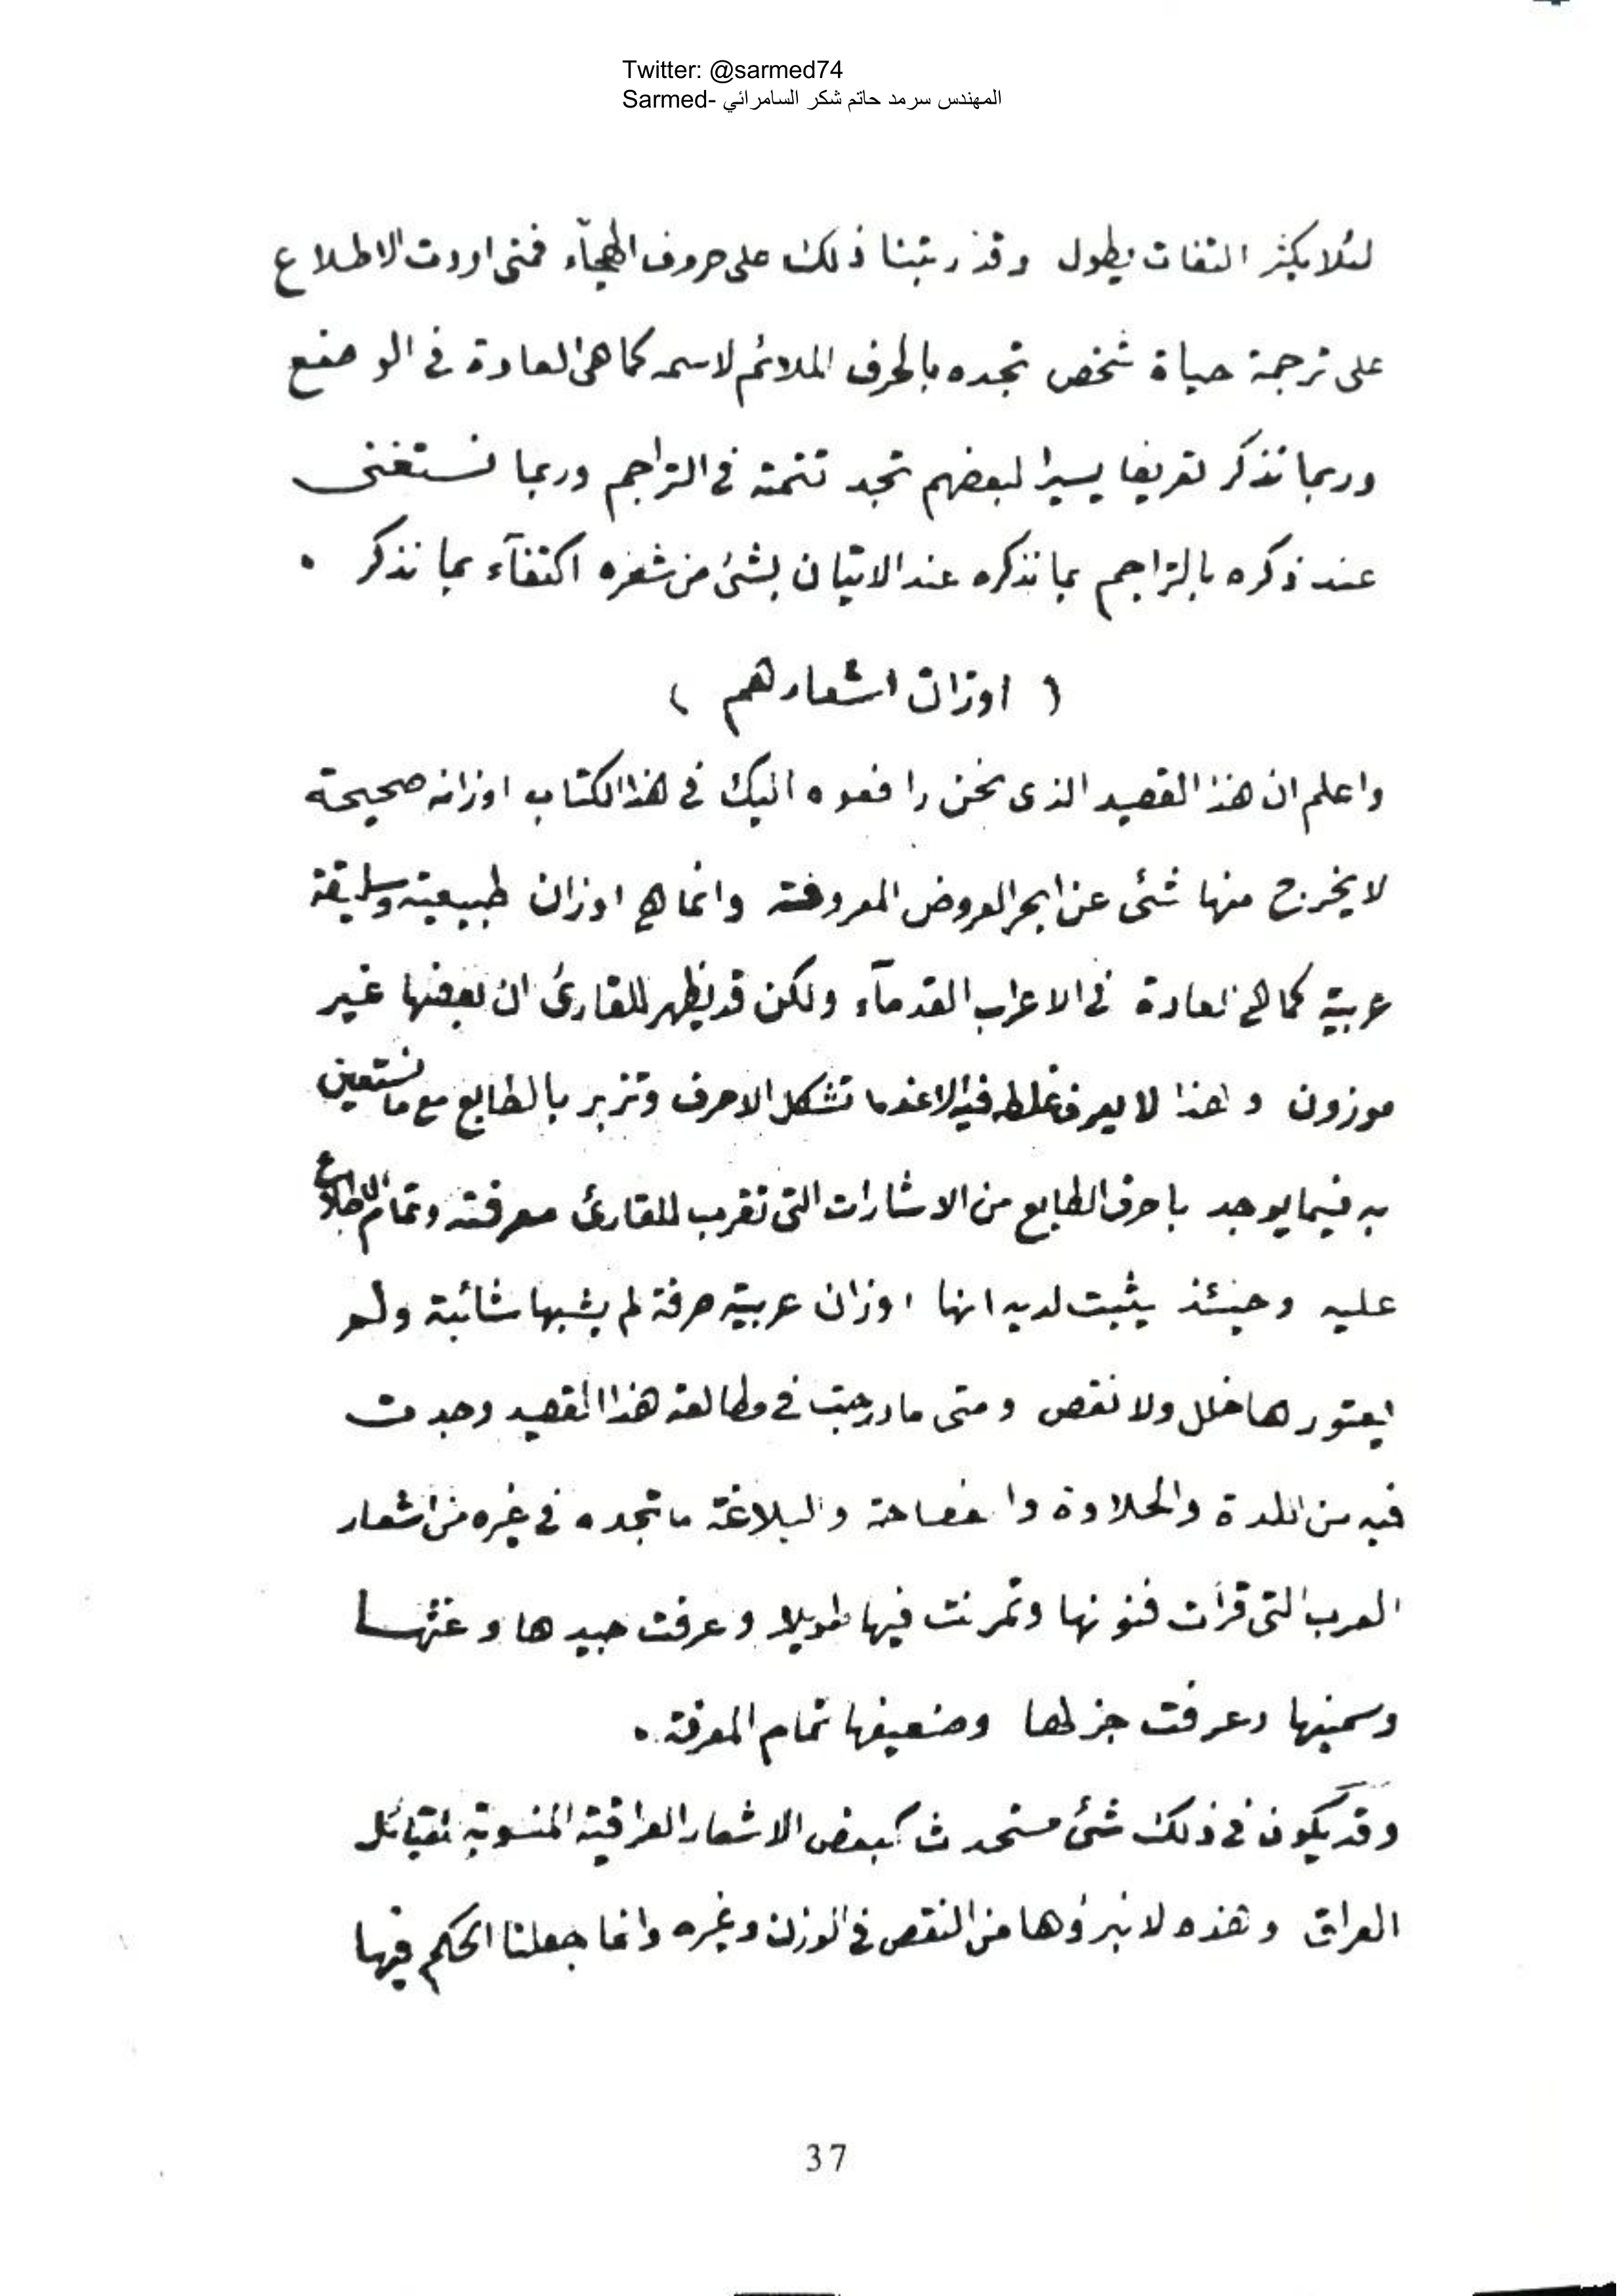 Twitter: @sarmed74
Sarmed- المهندس سرمد حاتم شكر السامرائي
لئلا يكثر التفات يطول وقد رتبنا ذلك على حروف الهجآء فمتى اردت الاطلاع
على ترجمة حياة شخص تجده بالحرف الملائم لاسمه كما هى العادة في الوضع
وربما نذكر تعريفا يسيرا لبعضهم تجد تتمته في التراجم وربما نستغنى
عند ذكره بالتراجم بما نذكره عند الاتيان بشئ من شعره اكتفآء بما نذكر .
( اوزان اشعارهم )
واعلم ان هذا القصيد الذى نحن رافعوه اليك في هذا الكتاب اوزانه صحيحة
لا يخرج منها شئى عن ابحر العروض المعروفة وانما هي اوزان طبيعية وسليقة
عربية كما هي العادة في الاعراب القدمآء ولكن قد يظهر للقارئ ان بعضها غير
موزون وهذا لا يعرف غلطه فيه الا عندما تشكل الاحرف وتزبر بالطابع مع ما نستعين
به فيما يوجد باحرف الطابع من الاشارات التى تقرب للقارئ معرفته وتمام الاطلاع
عليه وحينئذ يثبت لديه انها اوزان عربية صرفة لم يشبها شائبة ولم
يعتورها خلل ولا نقص ومتى ما درجت في مطالعة هذا القصيد وجدت
فيه من اللذة والحلاوة والفصاحة والبلاغة ما تجده في غيره من اشعار
العرب التى قرأت فنونها وتمرنت فيها طويلا وعرفت جيدها وغثها
وسمينها وعرفت جزلها وضعيفها تمام المعرفة .
وقد يكون في ذلك شئى مستحدث كبعض الاشعار العراقية المنسوبة لقبائل
العراق وهذه لا نبرؤها من النقص في الوزن وغيره وانما جعلنا الحكم فيها
37